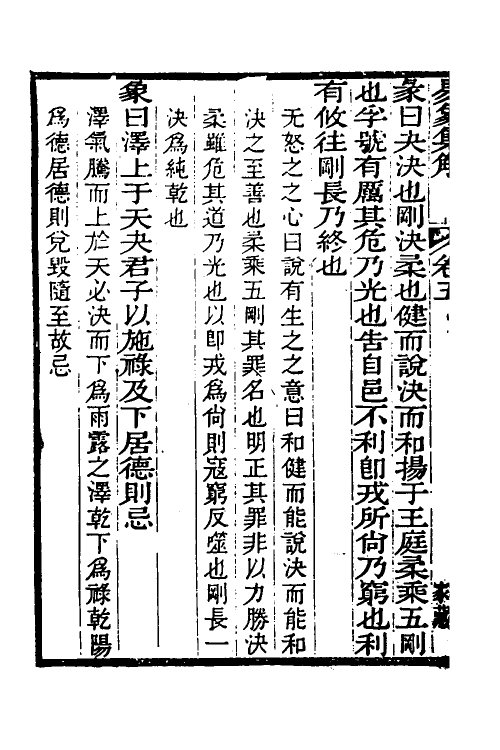 易象集解　卷五
彖曰夬決也剛決柔也健而說決而和揚于王庭柔乘五剛
也孚號有厲其危乃光也告自邑不利卽戎所尙乃窮也利
有攸往剛長乃終也
无怒之之心曰說有生之之意曰和健而能說決而能和
決之至善也柔乘五剛其罪名也明正其罪非以力勝決
柔雖危其道乃光也以卽戎爲尙則寇窮反噬也剛長一
決爲純乾也
象曰澤上于天夬君子以施祿及下居德則忌
澤氣騰而上於天必決而下爲雨露之澤乾下爲祿乾陽
爲德居德則兌毀隨至故忌